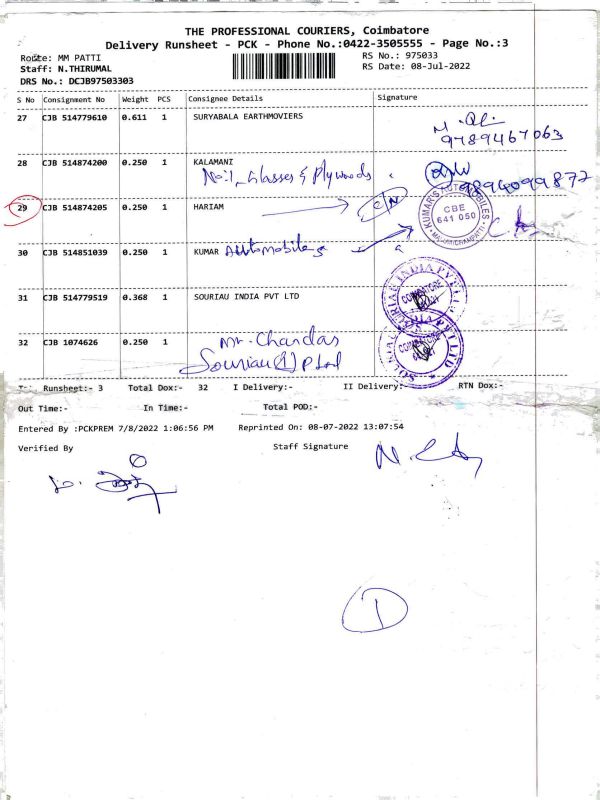 THE PROFESSIONAL COURIERS, Coimbatore
Delivery Runsheet - PCK - Phone No.:0422-3505555 - Page No.:3
Route: MM PATTI
RS No.: 975033
Staff: N.THIRUMAL
RS Date: 08-Jul-2022
DRS No.: DCJB97503303
S No Consignment No Weight PCS Consignee Details Signature
27 CJB 514779610 0.611 1 SURYABALA EARTHMOVIERS
9789467063
28 CJB 514874200 0.250 1 KALAMANI
No:1, Glasses & Plywoods
9894099872
29 CJB 514874205 0.250 1 HARIAM
KUMAR'S AUTOMOBILES
CBE
641 050
30 CJB 514851039 0.250 1 KUMAR Automobiles
31 CJB 514779519 0.368 1 SOURIAU INDIA PVT LTD
SOURIAU INDIA PVT LTD
COIMBATORE
32 CJB 1074626 0.250 1 Mr. Chandas
Souriau (I) P Ltd
Runsheet:- 3 Total Dox:- 32 I Delivery:- II Delivery:- RTN Dox:-
Out Time:- In Time:- Total POD:-
Entered By :PCKPREM 7/8/2022 1:06:56 PM Reprinted On: 08-07-2022 13:07:54
Verified By Staff Signature